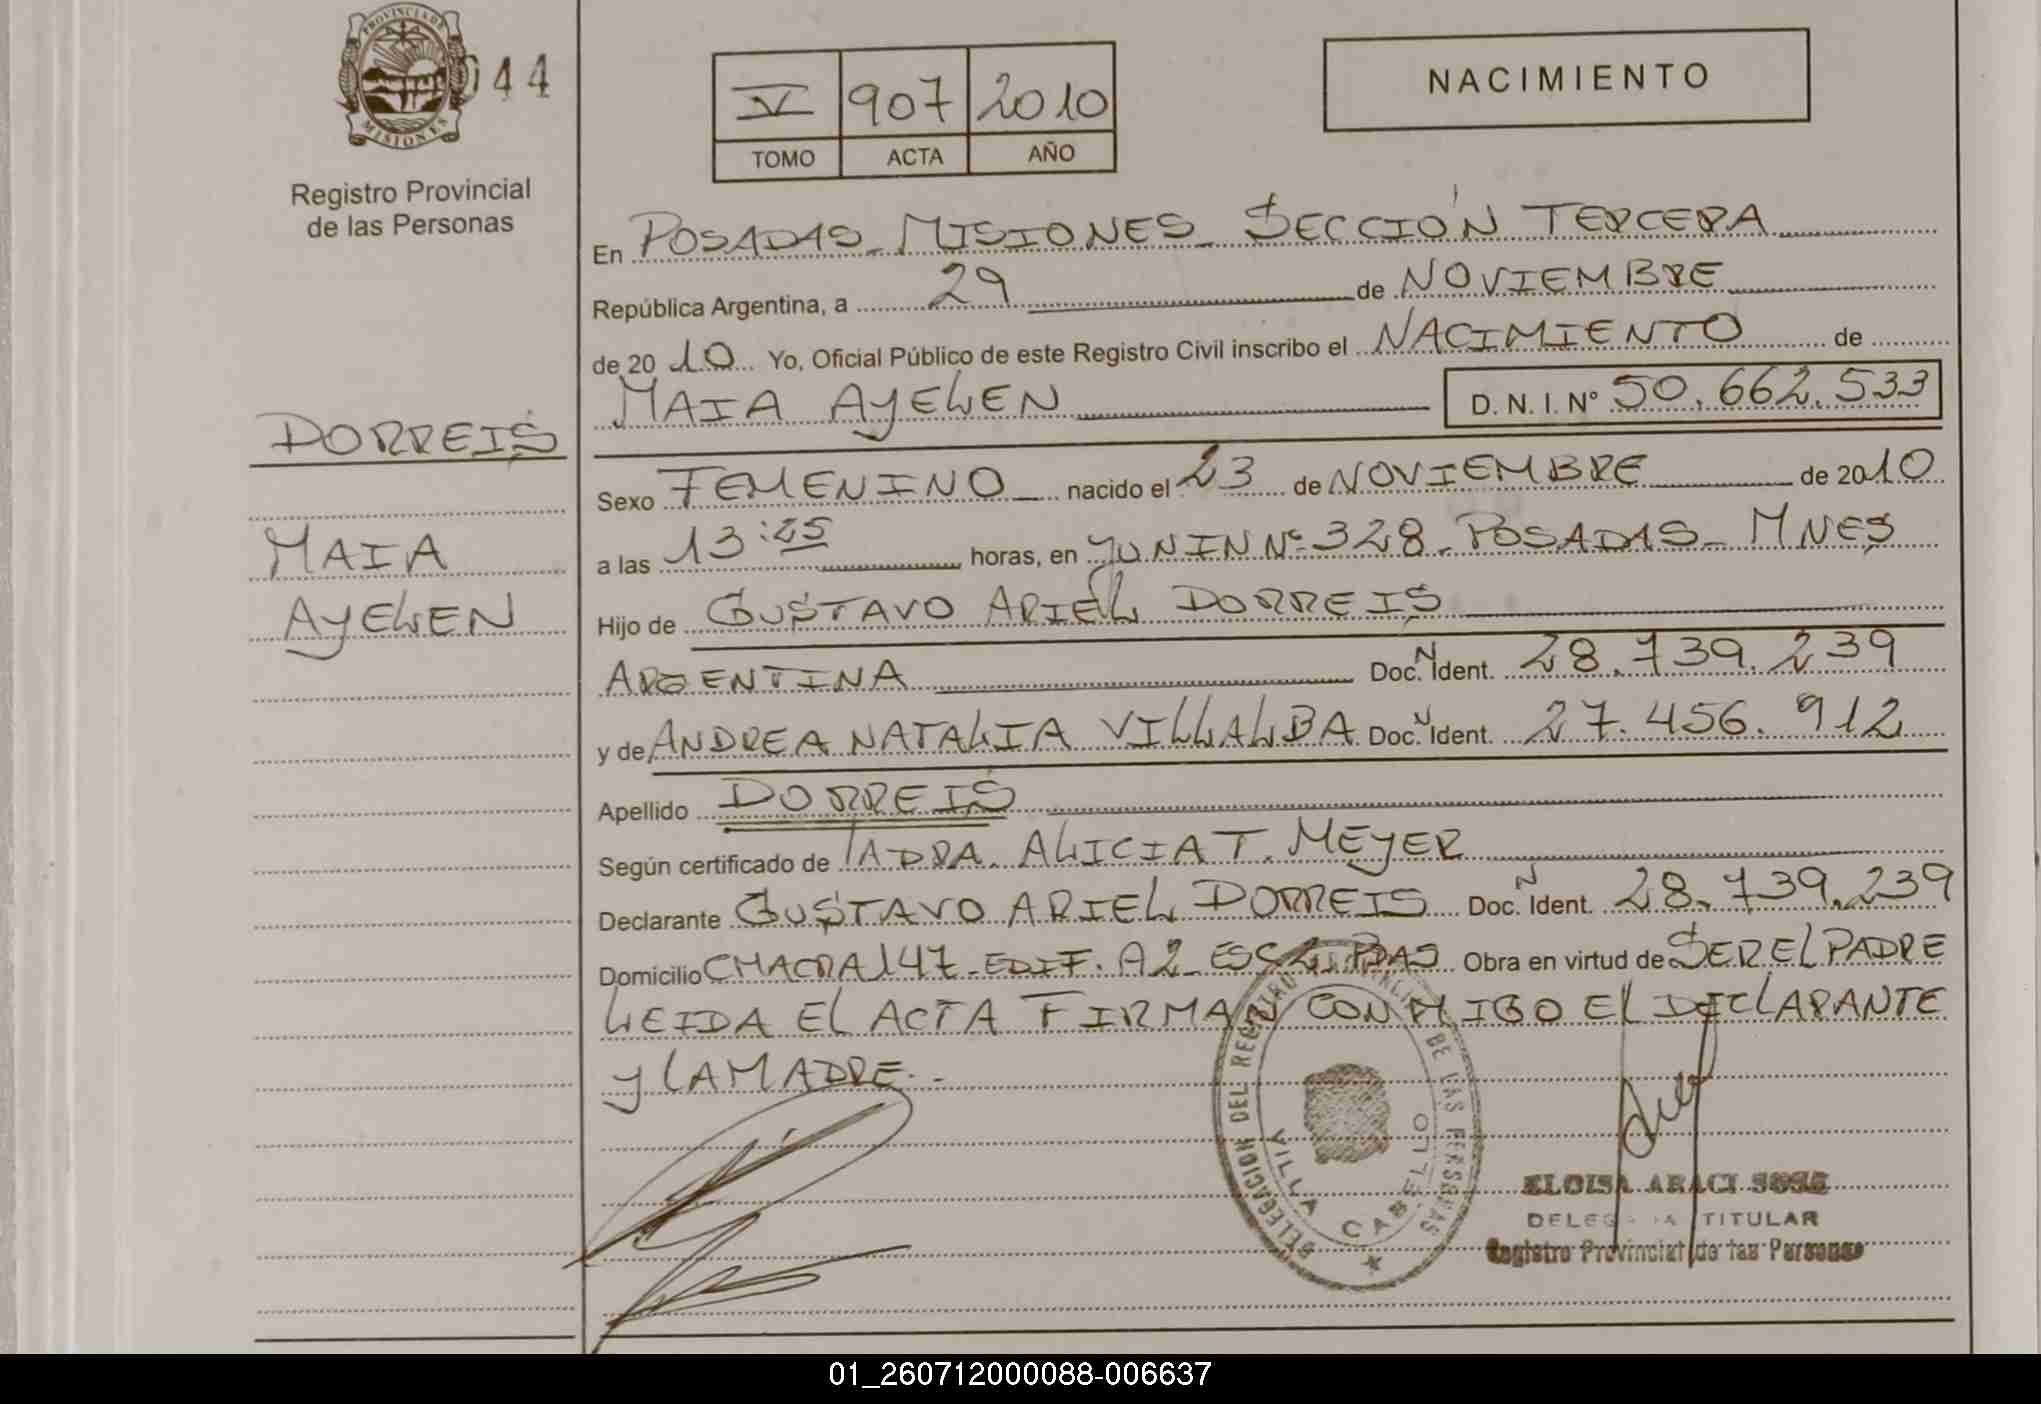 PROVINCIA DE
MISIONES
044
Registro Provincial
de las Personas
V 907 2010
TOMO ACTA AÑO
NACIMIENTO
En POSADAS_MISIONES_SECCIÓN TERCERA
República Argentina, a 29 de NOVIEMBRE
de 2010 Yo, Oficial Público de este Registro Civil inscribo el NACIMIENTO de
MAIA AYELEN D. N. I. N° 50.662.533
DORREIS
MAIA
AYELEN
Sexo FEMENINO nacido el 23 de NOVIEMBRE de 2010
a las 13:25 horas, en JUNIN Nº 328_POSADAS_MNES
Hijo de GUSTAVO ARIEL DORREIS
ARGENTINA Doc. N Ident. 28.739.239
y de ANDREA NATALIA VILLALBA Doc. N Ident. 27.456.912
Apellido DORREIS
Según certificado de LA DRA. ALICIA T. MEYER
Declarante GUSTAVO ARIEL DORREIS Doc. N Ident. 28.739.239
Domicilio CHACRA 147_EDIF. A2_ESC PDAS Obra en virtud de SER EL PADRE
LEIDA EL ACTA FIRMAN CONMIGO EL DECLARANTE
Y LA MADRE.-
DELEGACION DEL REGISTRO PROVINCIAL DE LAS PERSONAS
VILLA CABELLO
ELOISA ARACI SOSA
DELEGADA TITULAR
Registro Provincial de las Personas
01_260712000088-006637